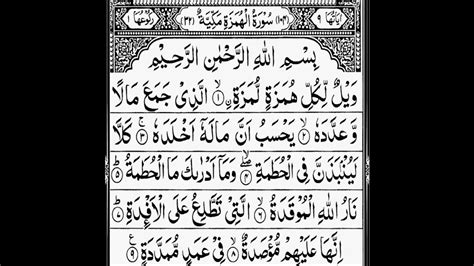 اٰيَاتُهَا ٩ (١٠٤) سُوْرَةُ الْهُمَزَةِ مَكِّيَّةٌ (٣٢) رُكُوْعُهَا
بِسْمِ اللّٰهِ الرَّحْمٰنِ الرَّحِيْمِ
وَيْلٌ لِّكُلِّ هُمَزَةٍ لُّمَزَةِ ۙ﴿١﴾ الَّذِيْ جَمَعَ مَالًا
وَّ عَدَّدَهٗ ۙ﴿٢﴾ يَحْسَبُ اَنَّ مَالَهٗۤ اَخْلَدَهٗ ۚ﴿٣﴾ كَلَّا
لَيُنْۢبَذَنَّ فِي الْحُطَمَةِ ۖ﴿٤﴾ وَمَاۤ اَدْرٰىكَ مَا الْحُطَمَةُ ؕ﴿٥﴾
نَارُ اللّٰهِ الْمُوْقَدَةُ ۙ﴿٦﴾ الَّتِيْ تَطَّلِعُ عَلَى الْاَفْـِٕدَةِ ؕ﴿٧﴾
اِنَّهَا عَلَيْهِمْ مُّؤْصَدَةٌ ۙ﴿٨﴾ فِيْ عَمَدٍ مُّمَدَّدَةٍ ۠﴿٩﴾